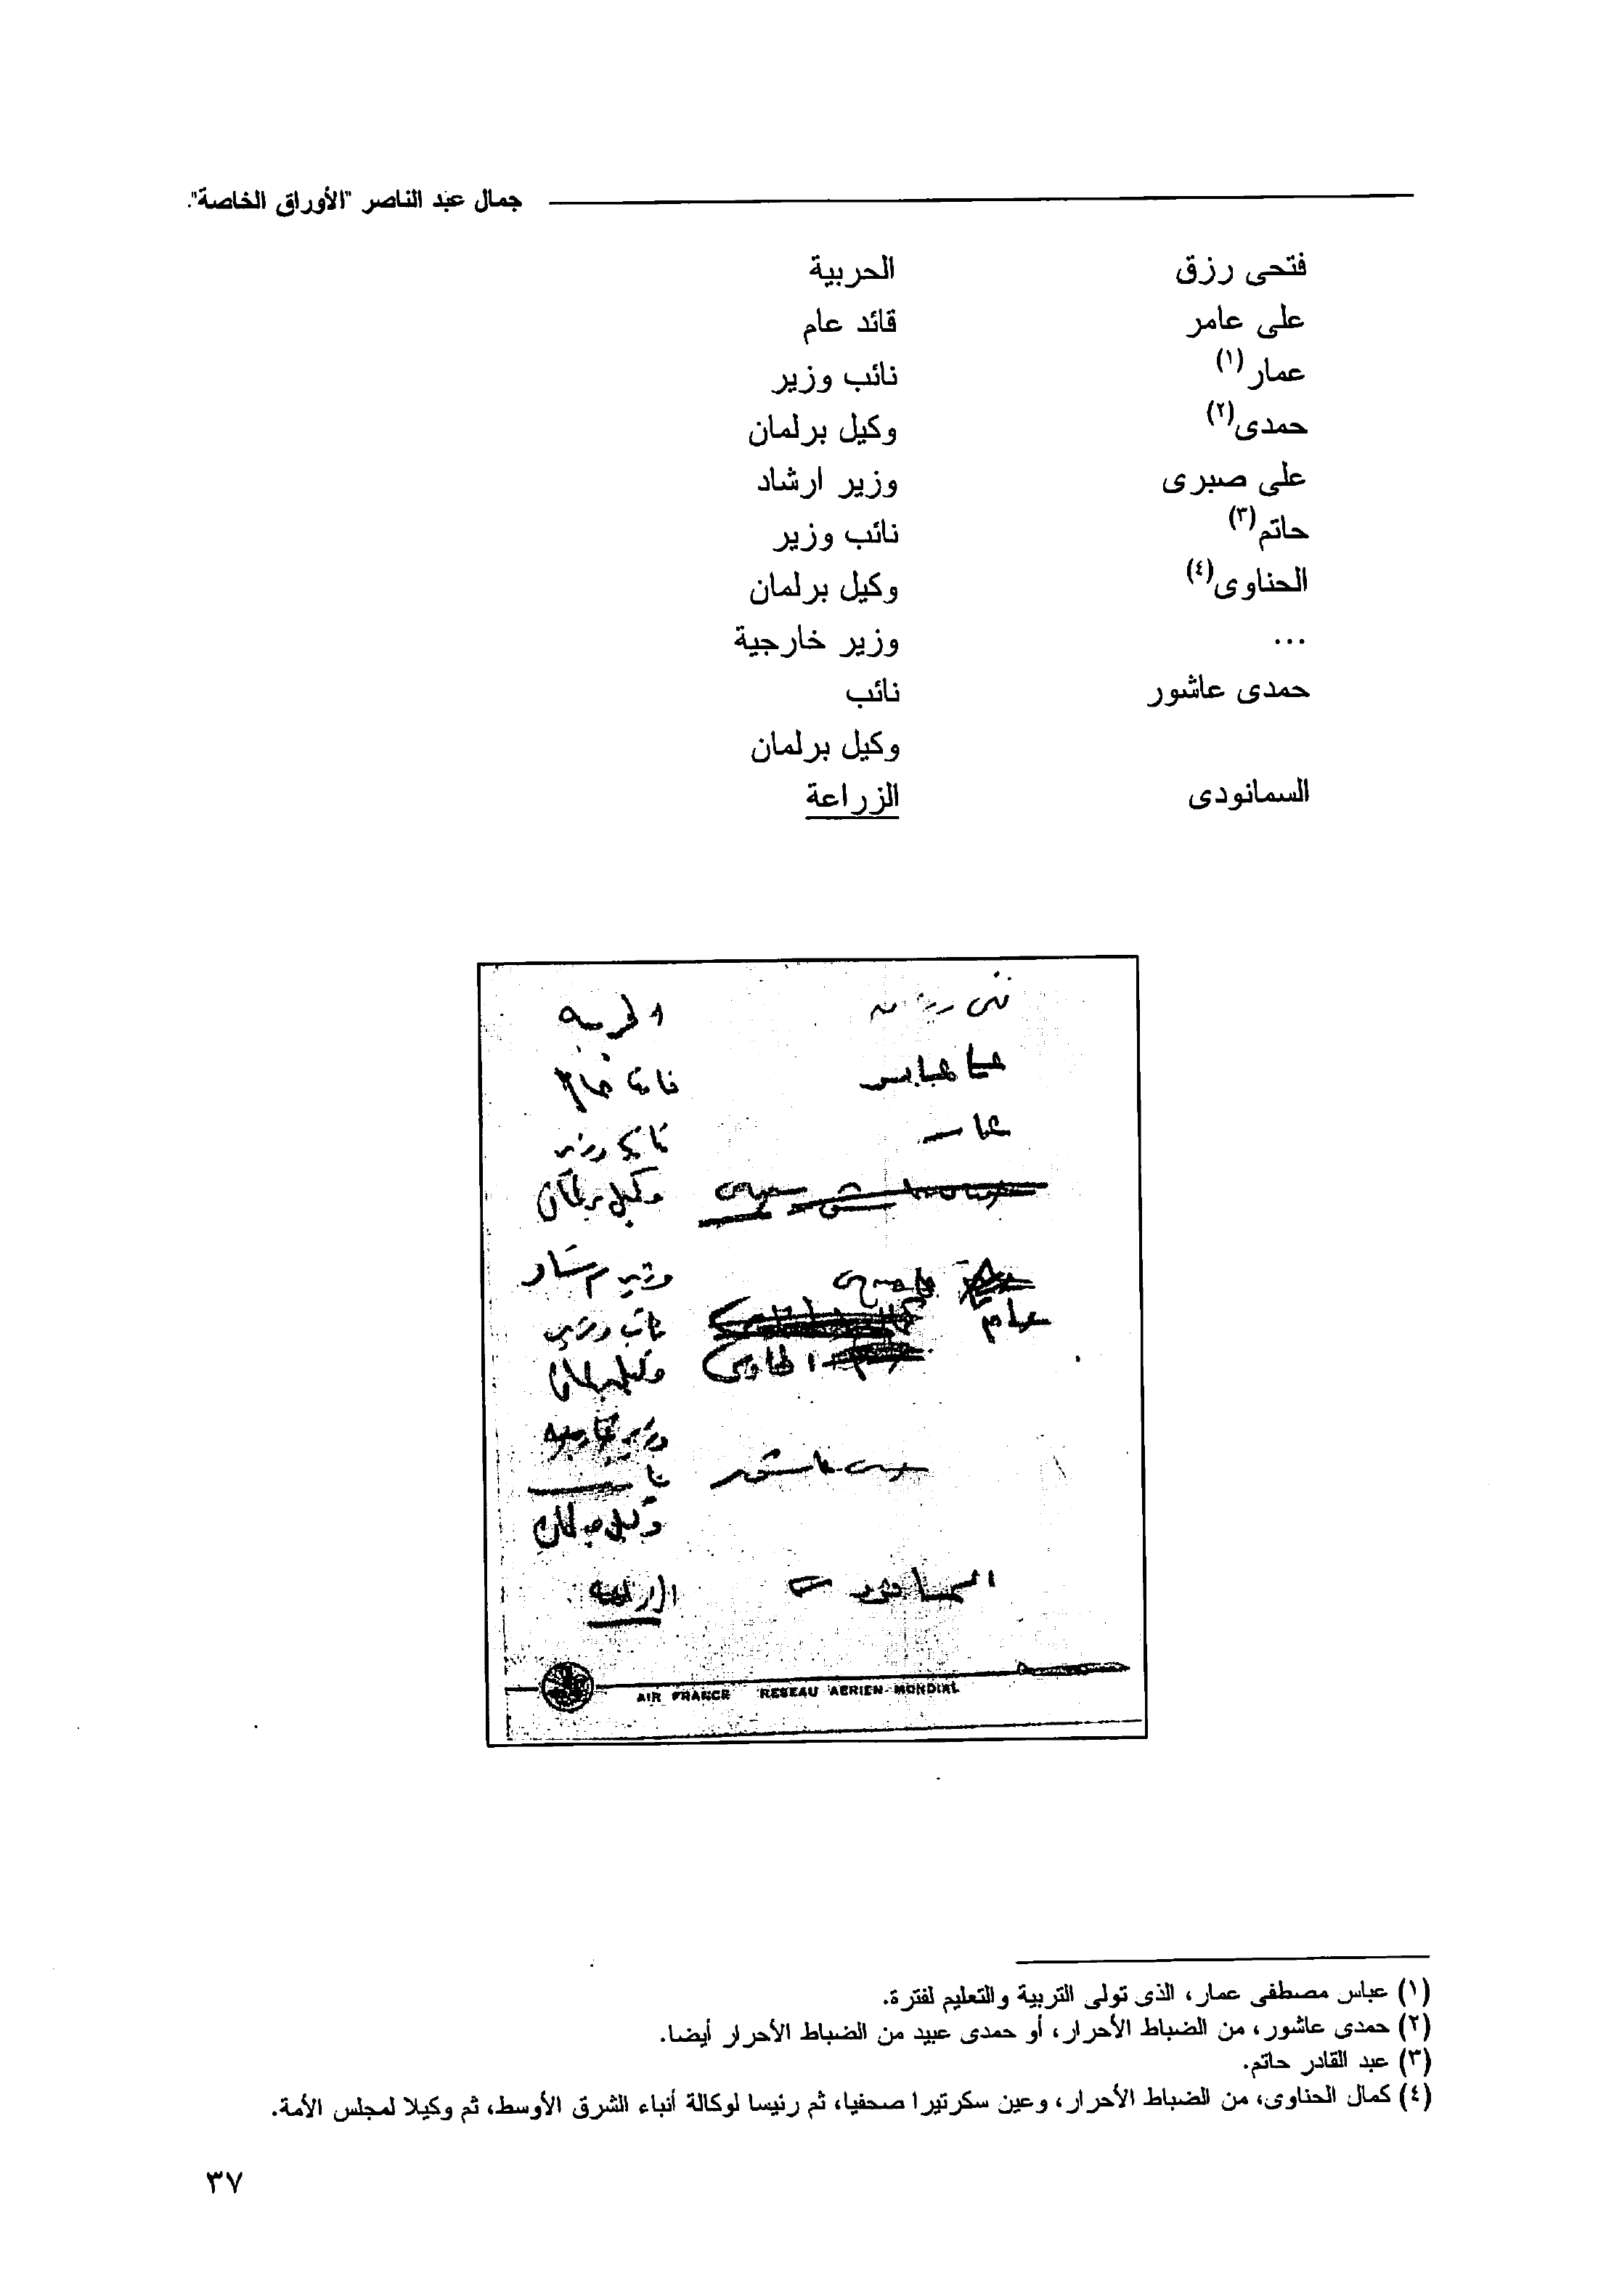 جمال عبد الناصر "الأوراق الخاصة".
فتحى رزق الحربية
على عامر قائد عام
عمار(١) نائب وزير
حمدى(٢) وكيل برلمان
على صبرى وزير ارشاد
حاتم(٣) نائب وزير
الحناوى(٤) وكيل برلمان
... وزير خارجية
حمدى عاشور نائب
وكيل برلمان
السمانودى الزراعة
الحربية
نائب وزير
وكيل برلمان
نائب وزير
الحناوى وكيل برلمان
وزير خارجية
وكيل برلمان
الزراعة
AIR FRANCE RESEAU AERIEN MONDIAL
(١) عباس مصطفى عمار، الذى تولى التربية والتعليم لفترة.
(٢) حمدى عاشور، من الضباط الأحرار، أو حمدى عبيد من الضباط الأحرار أيضا.
(٣) عبد القادر حاتم.
(٤) كمال الحناوى، من الضباط الأحرار، وعين سكرتيرا صحفيا، ثم رئيسا لوكالة أنباء الشرق الأوسط، ثم وكيلا لمجلس الأمة.
٣٧